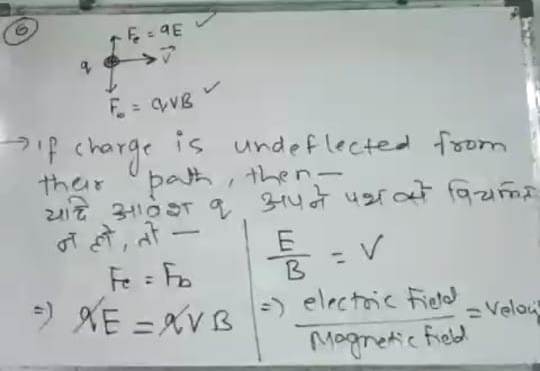 6
Fe = qE ✓
q → v⃗
Fb = qVB ✓
→ If charge is undeflected from
their path, then —
यदि आवेश q अपने पथ से विचलित
न हो, तो —
Fe = Fb
⇒ qE = qVB
E/B = V
⇒ electric Field / Magnetic field =